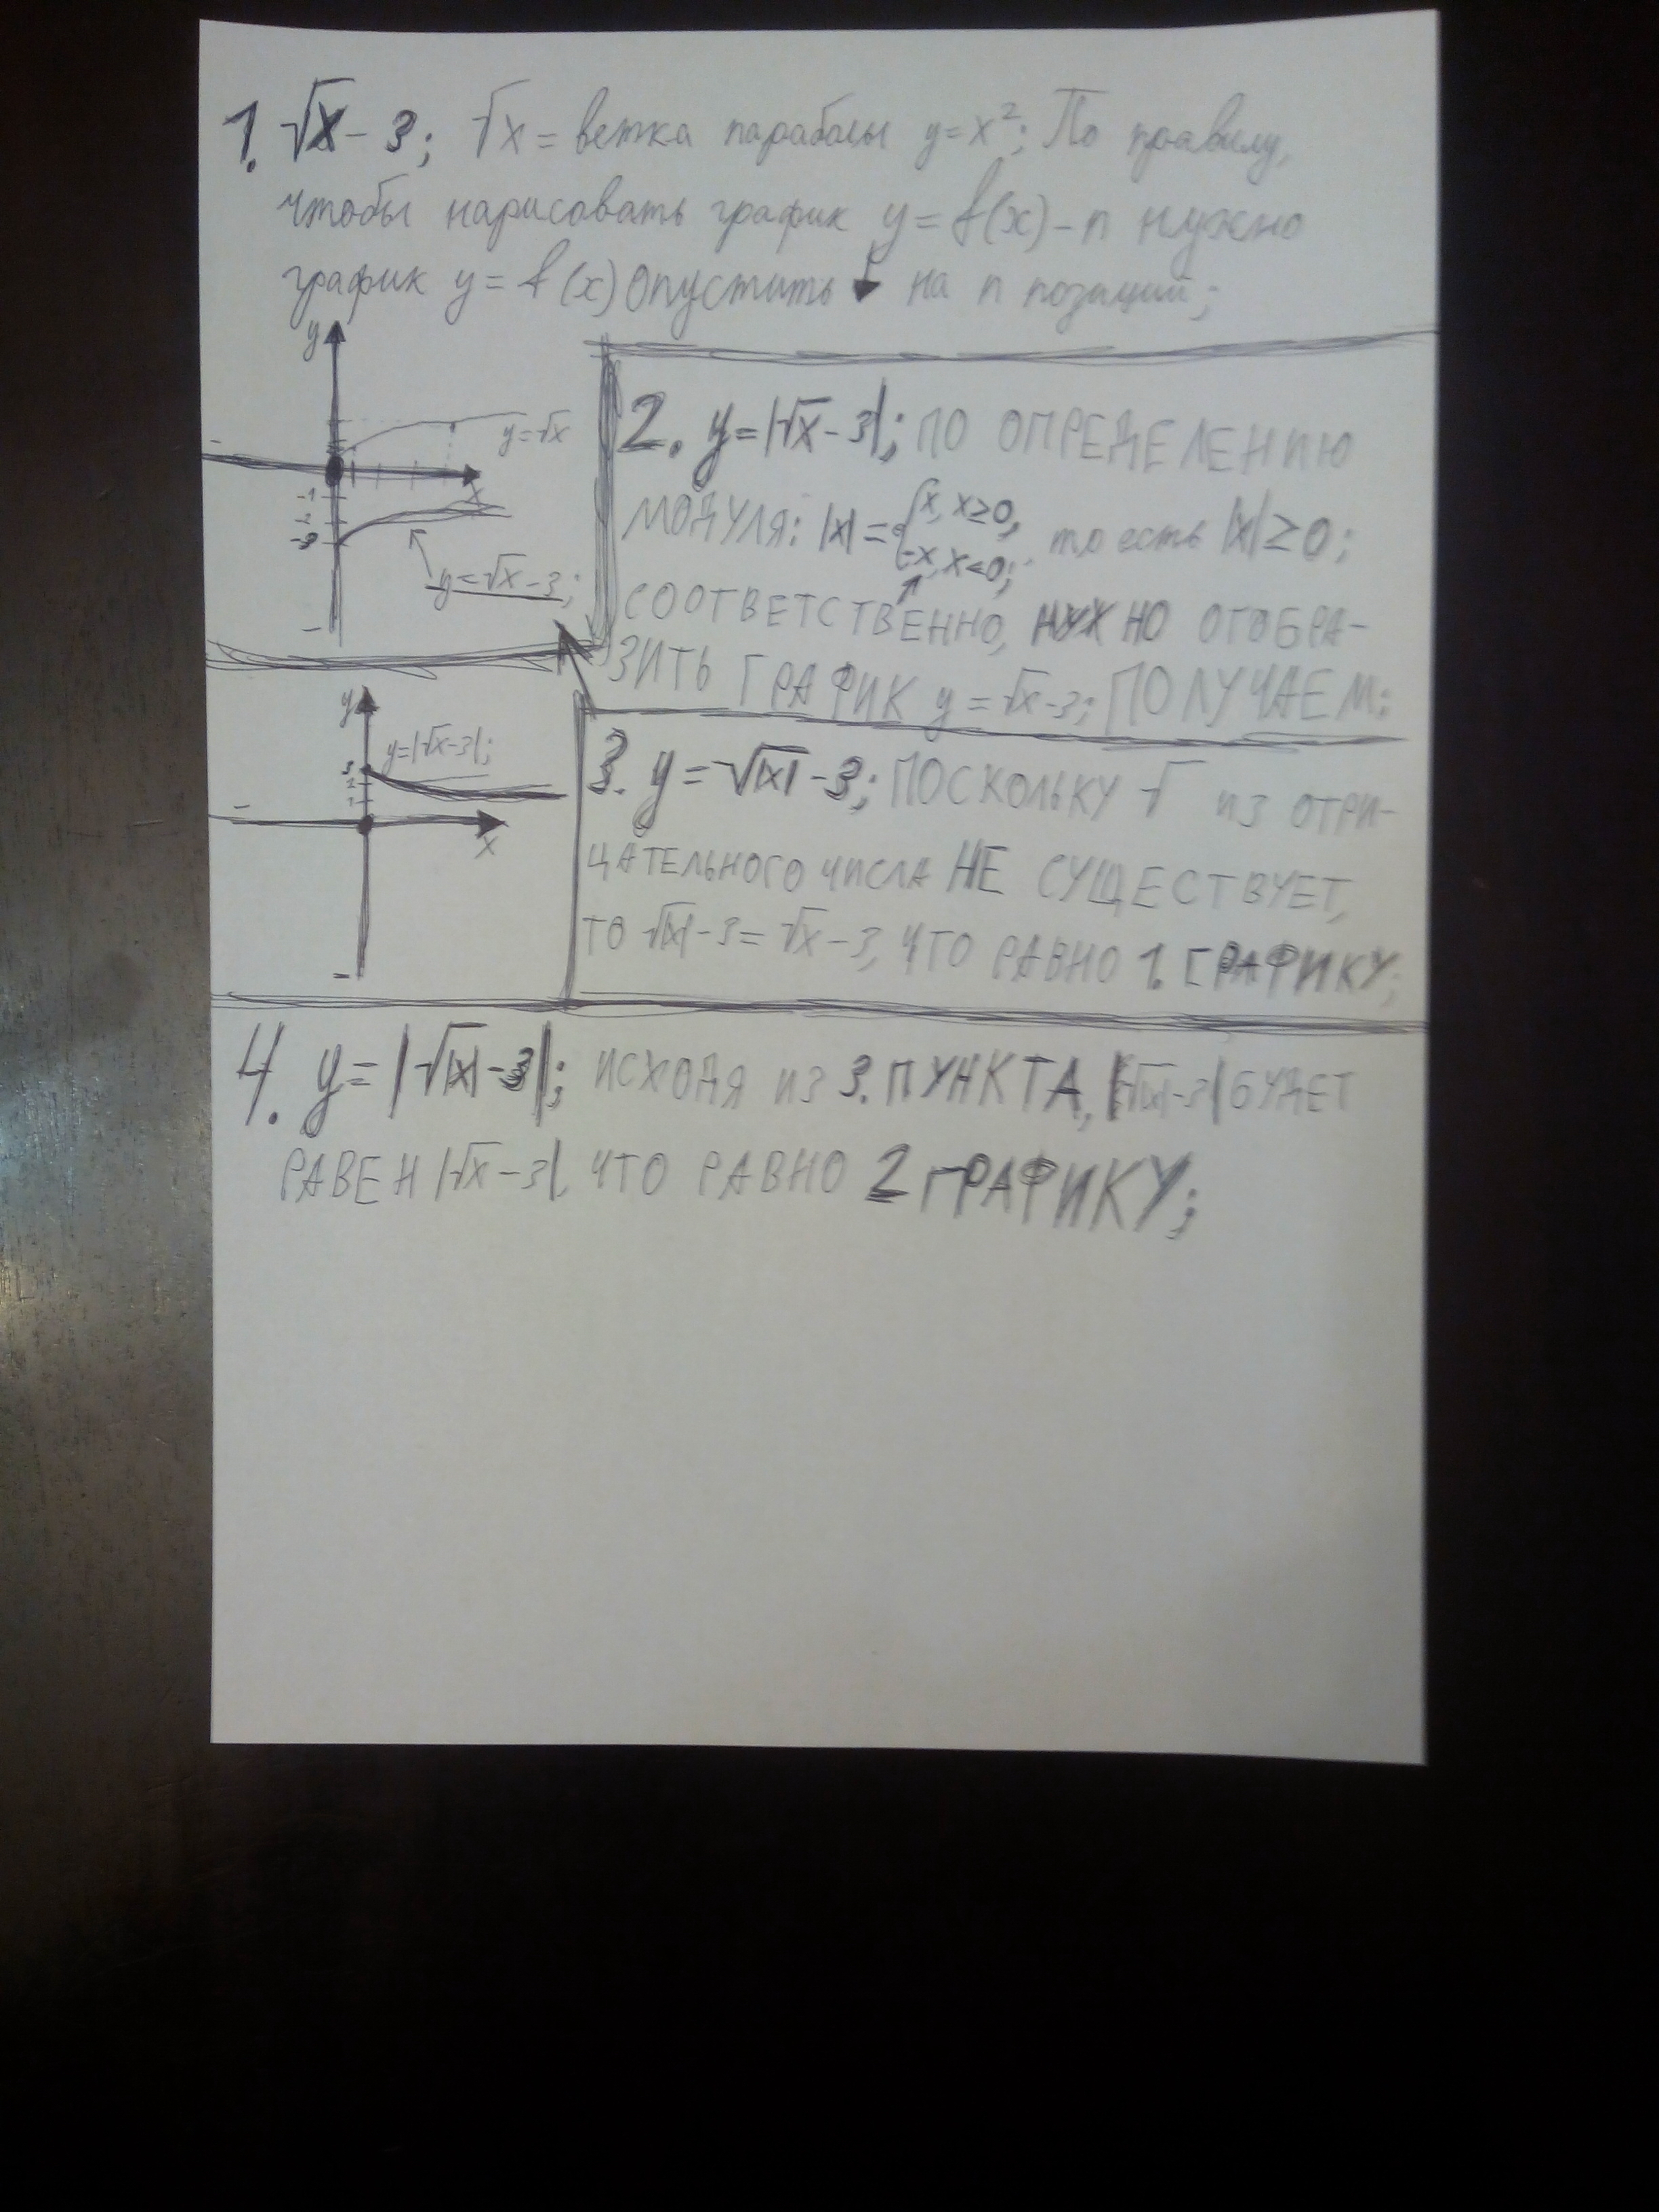 1. √x - 3; √x = ветка параболы y = x²; По правилу,
чтобы нарисовать график y = f(x) - n нужно
график y = f(x) опустить ↓ на n позаций;
y
y=√x
x
-1
-2
-3
y=√x-3;
2. y=|√x-3|; ПО ОПРЕДЕЛЕНИЮ
МОДУЛЯ: |x| = { x, x≥0,
-x, x<0; то есть |x| ≥ 0;
СООТВЕТСТВЕННО, НУЖНО ОТОБРА-
ЗИТЬ ГРАФИК y = √x-3; ПОЛУЧАЕМ:
y
y=|√x-3|;
3
2
1
x
3. y = √|x| - 3; ПОСКОЛЬКУ √ ИЗ ОТРИ-
ЦАТЕЛЬНОГО ЧИСЛА НЕ СУЩЕСТВУЕТ,
ТО √|x| - 3 = √x - 3, ЧТО РАВНО 1. ГРАФИКУ;
4. y = |√|x| - 3|; ИСХОДЯ ИЗ 3. ПУНКТА, |√|x| - 3| БУДЕТ
РАВЕН |√x - 3|, ЧТО РАВНО 2 ГРАФИКУ;